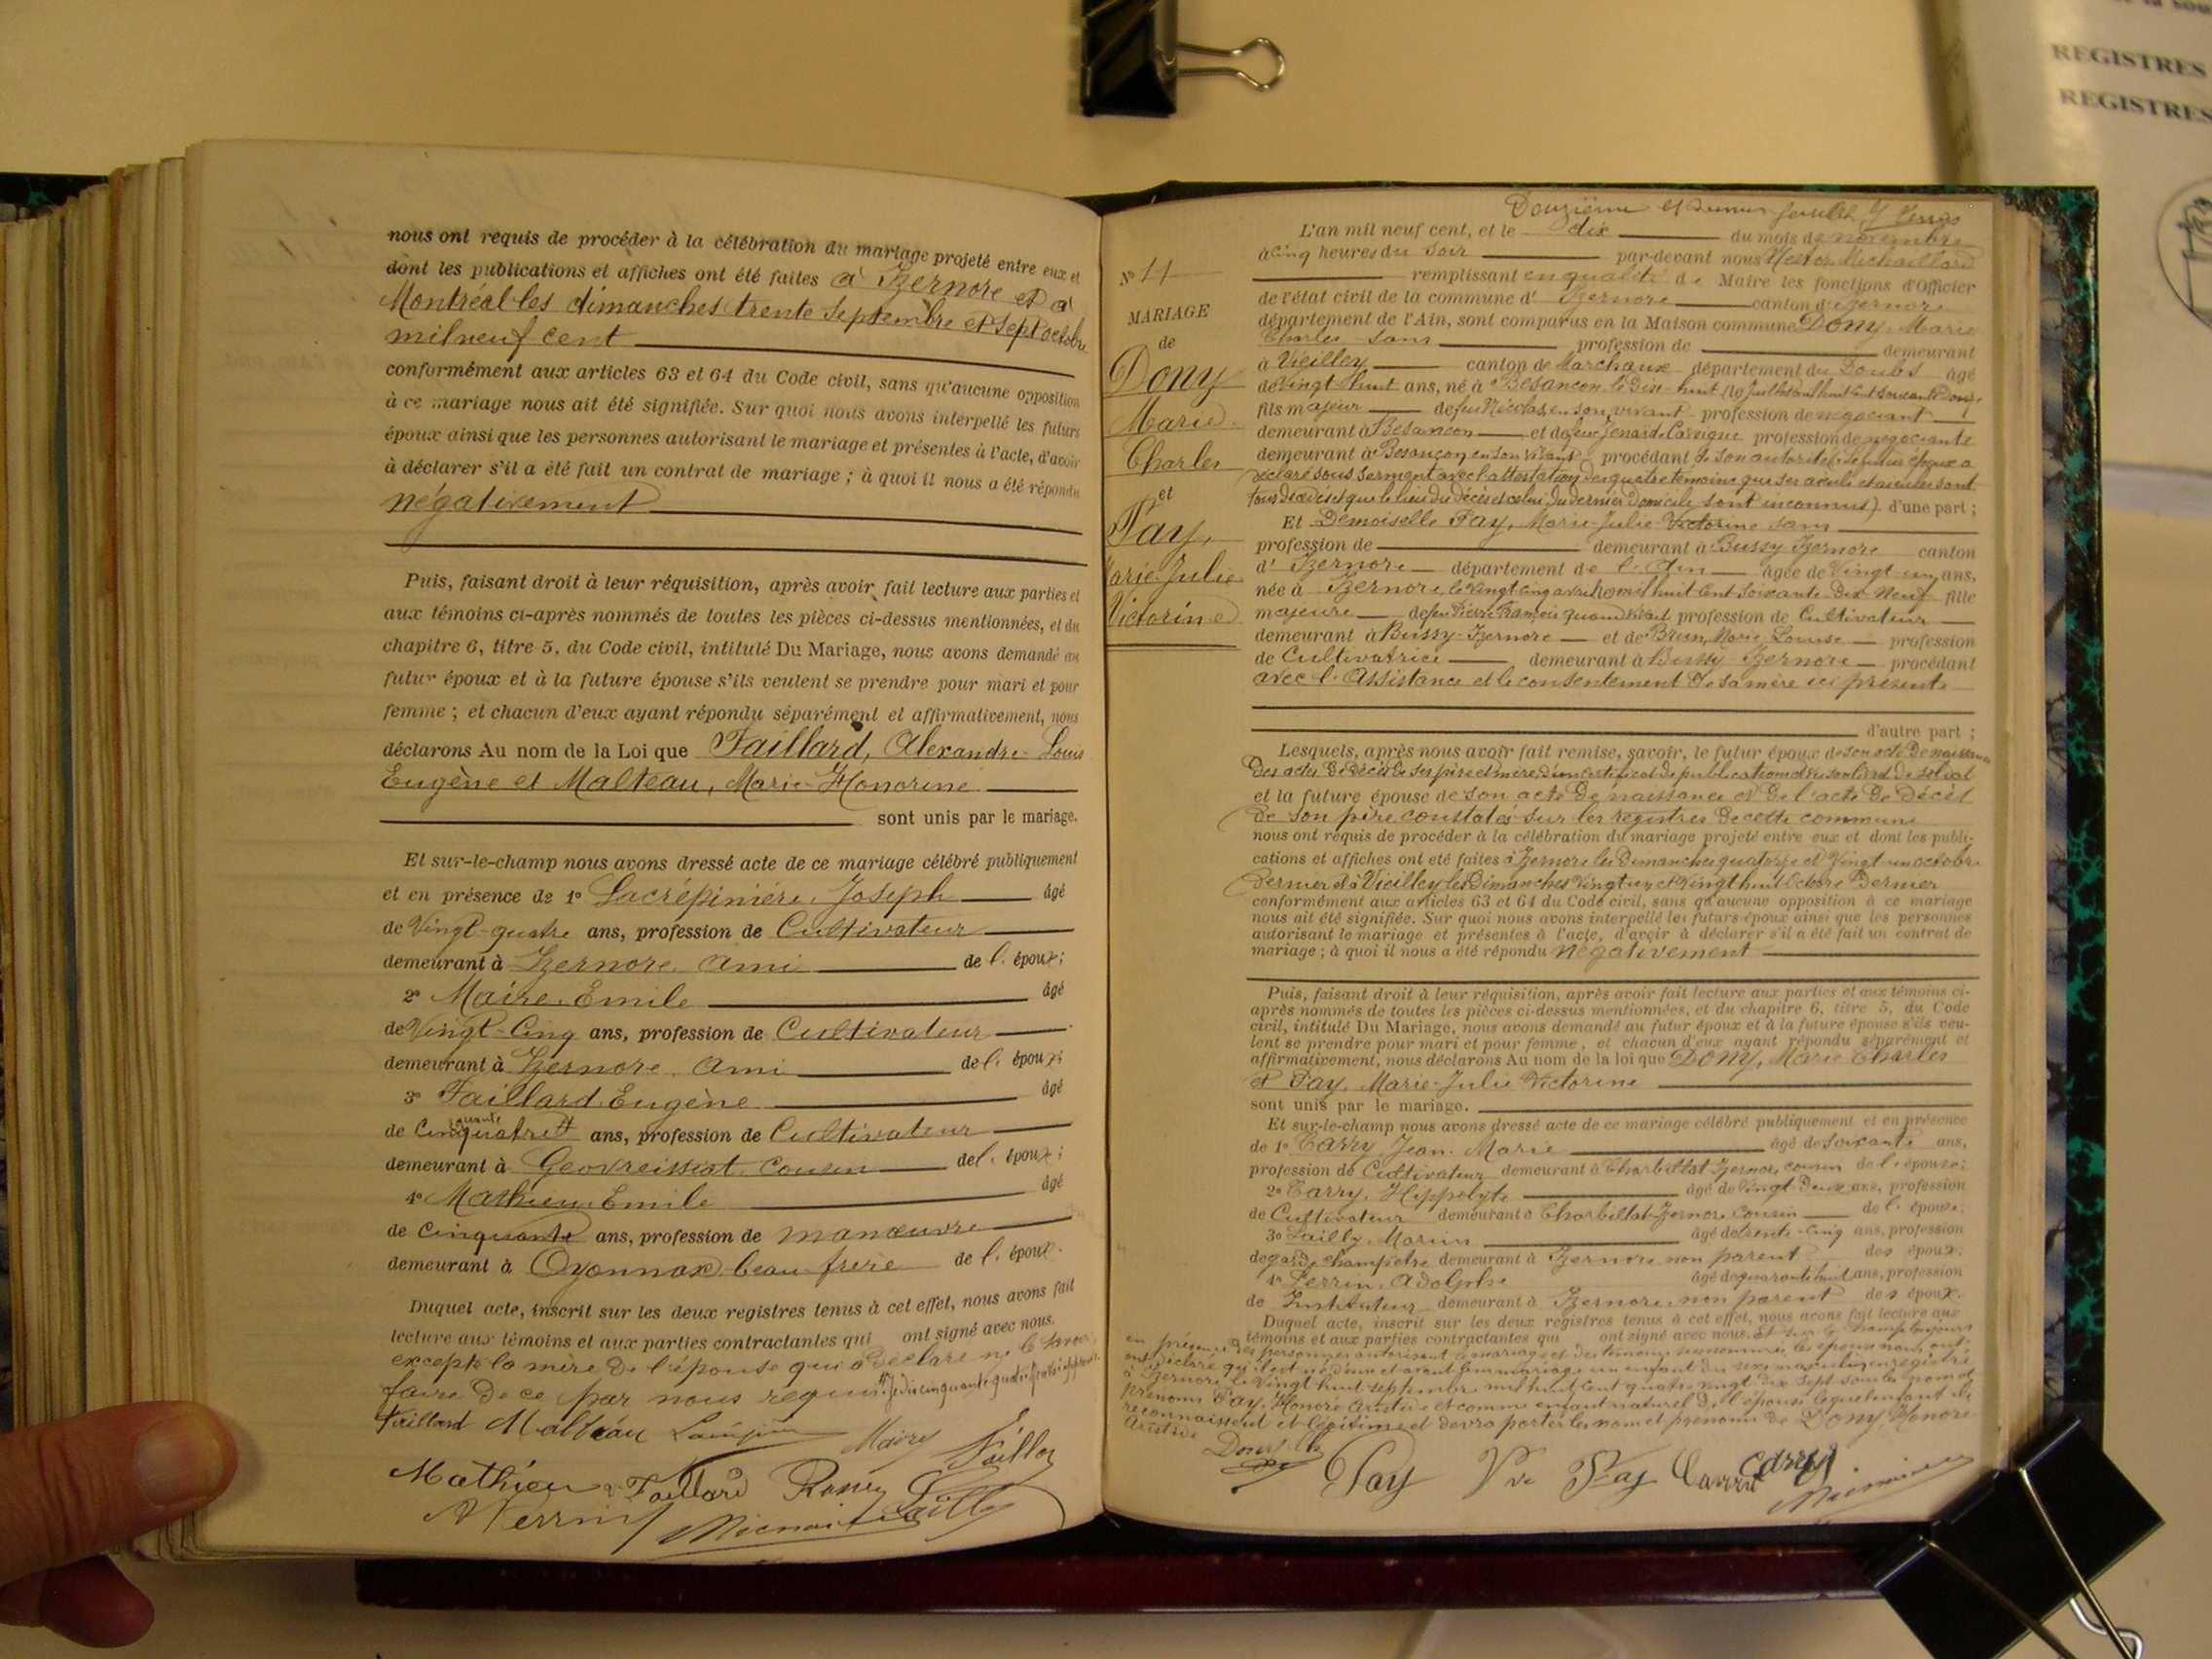 nous ont requis de procéder à la célébration du mariage projeté entre eux et
dont les publications et affiches ont été faites à Izernore et à
Montréal les dimanches trente Septembre et Sept octobre
mil neuf cent
conformément aux articles 63 et 64 du Code civil, sans qu'aucune opposition
à ce mariage nous ait été signifiée. Sur quoi nous avons interpellé les futurs
époux ainsi que les personnes autorisant le mariage et présentes à l'acte, d'avoir
à déclarer s'il a été fait un contrat de mariage ; à quoi il nous a été répondu
négativement
Puis, faisant droit à leur réquisition, après avoir fait lecture aux parties et
aux témoins ci-après nommés de toutes les pièces ci-dessus mentionnées, et du
chapitre 6, titre 5, du Code civil, intitulé Du Mariage, nous avons demandé au
futur époux et à la future épouse s'ils veulent se prendre pour mari et pour
femme ; et chacun d'eux ayant répondu séparément et affirmativement, nous
déclarons Au nom de la Loi que Faillard, Alexandre-Louis
Eugène et Malteau, Marie-Honorine
sont unis par le mariage.
Et sur-le-champ nous avons dressé acte de ce mariage célébré publiquement
et en présence de 1° Lacrépinière, Joseph âgé
de Vingt-quatre ans, profession de Cultivateur
demeurant à Izernore, ami de l'époux;
2° Maire, Emile âgé
de Vingt-Cinq ans, profession de Cultivateur
demeurant à Izernore, ami de l'époux;
3° Faillard, Eugène âgé
de Cinquante quatre ans, profession de Cultivateur
demeurant à Geovreissiat, Cousin de l'époux;
4° Mathieu, Emile âgé
de Cinquante ans, profession de manœuvre
demeurant à Oyonnax, beau-frère de l'époux.
Duquel acte, inscrit sur les deux registres tenus à cet effet, nous avons fait
lecture aux témoins et aux parties contractantes qui ont signé avec nous.
excepté la mère de l'épouse qui a déclaré ne le savoir
faire de ce par nous requis. Je dis cinquante quatre
Faillard Malteau Maire
Mathieu Faillard
A Perrin
Douzième et dernier feuillet
N° 11
MARIAGE
de
Dony
Marie
Charles
et
Pay,
Marie-Julie
Victorine
L'an mil neuf cent, et le dix du mois de novembre
à cinq heures du soir par-devant nous Hector Michaillard
remplissant en qualité de Maire les fonctions d'Officier
de l'état civil de la commune d'Izernore canton d'Izernore
département de l'Ain, sont comparus en la Maison commune Dony, Marie
Charles sans profession de demeurant
à Vieilley canton de Marchaux département du Doubs âgé
de Vingt-huit ans, né à Besançon le dix-huit juillet mil huit cent soixante
fils majeur de feu Nicolas, en son vivant profession de négociant
demeurant à Besançon et de feue profession de négociante
demeurant à Besançon en son vivant procédant de son autorité (Le futur époux a
déclaré sous serment avec l'attestation des quatre témoins que ses aïeuls et aïeules sont
tous décédés et que le lieu du décès et celui du dernier domicile sont inconnus). d'une part ;
Et Demoiselle Pay, Marie-Julie-Victorine sans
profession de demeurant à Bussy-Izernore canton
d'Izernore département de l'Ain âgée de Vingt-un ans,
née à Izernore, le vingt cinq avril mil huit cent soixante dix neuf fille
majeure de feu Pierre François quand vivait profession de Cultivateur
demeurant à Bussy-Izernore et de Brun, Marie Louise profession
de Cultivatrice demeurant à Bussy-Izernore procédant
avec l'assistance et le consentement de sa mère ici présente
d'autre part ;
Lesquels, après nous avoir fait remise, savoir, le futur époux de son acte de naissance
des actes de décès de ses père et mère, d'un certificat de publication
et la future épouse de son acte de naissance et de l'acte de décès
de son père constatés sur les registres de cette commune
nous ont requis de procéder à la célébration du mariage projeté entre eux et dont les publi-
cations et affiches ont été faites à Izernore les Dimanches quatorze et Vingt-un octobre
dernier et à Vieilley les Dimanches Vingt un et vingt huit Octobre Dernier
conformément aux articles 63 et 64 du Code civil, sans qu'aucune opposition à ce mariage
nous ait été signifiée. Sur quoi nous avons interpellé les futurs époux ainsi que les personnes
autorisant le mariage et présentes à l'acte, d'avoir à déclarer s'il a été fait un contrat de
mariage ; à quoi il nous a été répondu négativement
Puis, faisant droit à leur réquisition, après avoir fait lecture aux parties et aux témoins ci-
après nommés de toutes les pièces ci-dessus mentionnées, et du chapitre 6, titre 5, du Code
civil, intitulé Du Mariage, nous avons demandé au futur époux et à la future épouse s'ils veu-
lent se prendre pour mari et pour femme, et chacun d'eux ayant répondu séparément et
affirmativement, nous déclarons Au nom de la loi que Dony, Marie Charles
et Pay, Marie-Julie Victorine
sont unis par le mariage.
Et sur-le-champ nous avons dressé acte de ce mariage célébré publiquement et en présence
de 1° Carry, Jean-Marie âgé de soixante ans,
profession de Cultivateur demeurant à Charbillat-Izernore, cousin de l'épouse;
2° Carry, Hippolyte âgé de Vingt-Deux ans, profession
de Cultivateur demeurant à Charbillat-Izernore Cousin de l'épouse;
3° Lailly, Marin âgé de trente-cinq ans, profession
de garde champêtre demeurant à Izernore non parent des époux;
4° Perrin, Adolphe âgé de quarante huit ans, profession
de Instituteur demeurant à Izernore, non parent des époux.
Duquel acte, inscrit sur les deux registres tenus à cet effet, nous avons fait lecture aux
témoins et aux parties contractantes qui ont signé avec nous. Et sur le champ toujours
en présence des personnes autorisant le mariage et des témoins susnommés, les époux nous ont
déclaré qu'il est né d'eux et avant leur mariage un enfant du sexe masculin enregistré
à Izernore, le Vingt huit septembre mil huit cent quatre vingt dix sept sous les nom et
prénoms Pay, Honoré Aristide et comme enfant naturel de l'épouse lequel enfant ils
reconnaissent et légitiment et devra porter les nom et prénoms de Dony Honoré
Aristide
Dony Pay Vve Pay Carry Carry
REGISTRES
REGISTRES